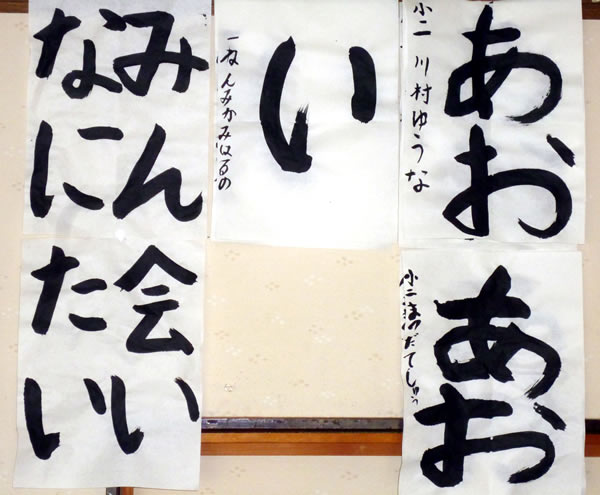 あお
小二 川村ゆうな
あお
小二 だてしゅう
い
一ねんみかみはるの
みん
なに
会い
たい